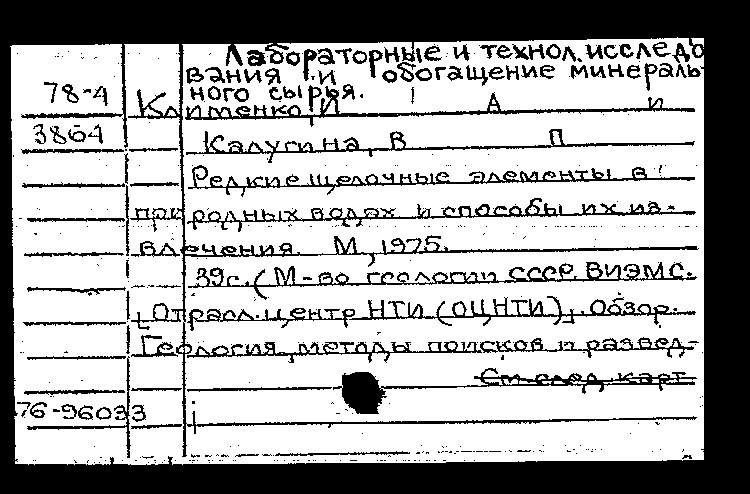 Лабораторные и технол. исследо
вания и обогащение минераль
ного сырья.
78-4 Клименко, И А и
3864 Калугина, В П
Редкие щелочные элементы в
природных водах и способы их из-
влечения. М., 1975.
39с. (М-во геологии СССР. ВИЭМС.
[Отрасл. центр НТИ (ОЦНТИ)]. Обзор.
Геология, методы поисков и развед-
См. след. карт
76-96033